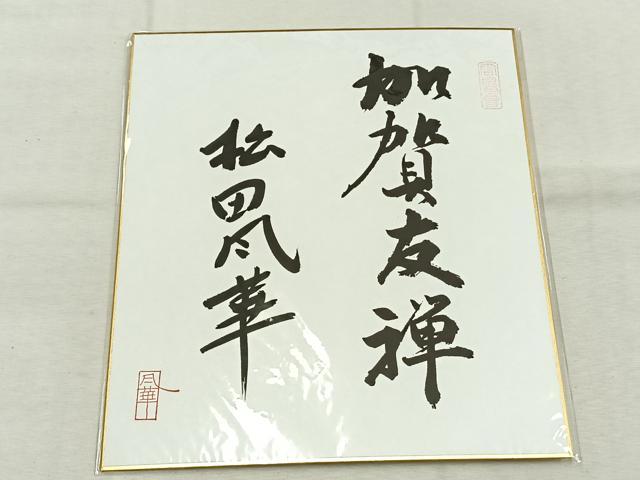 加賀友禅
松田風華
風華